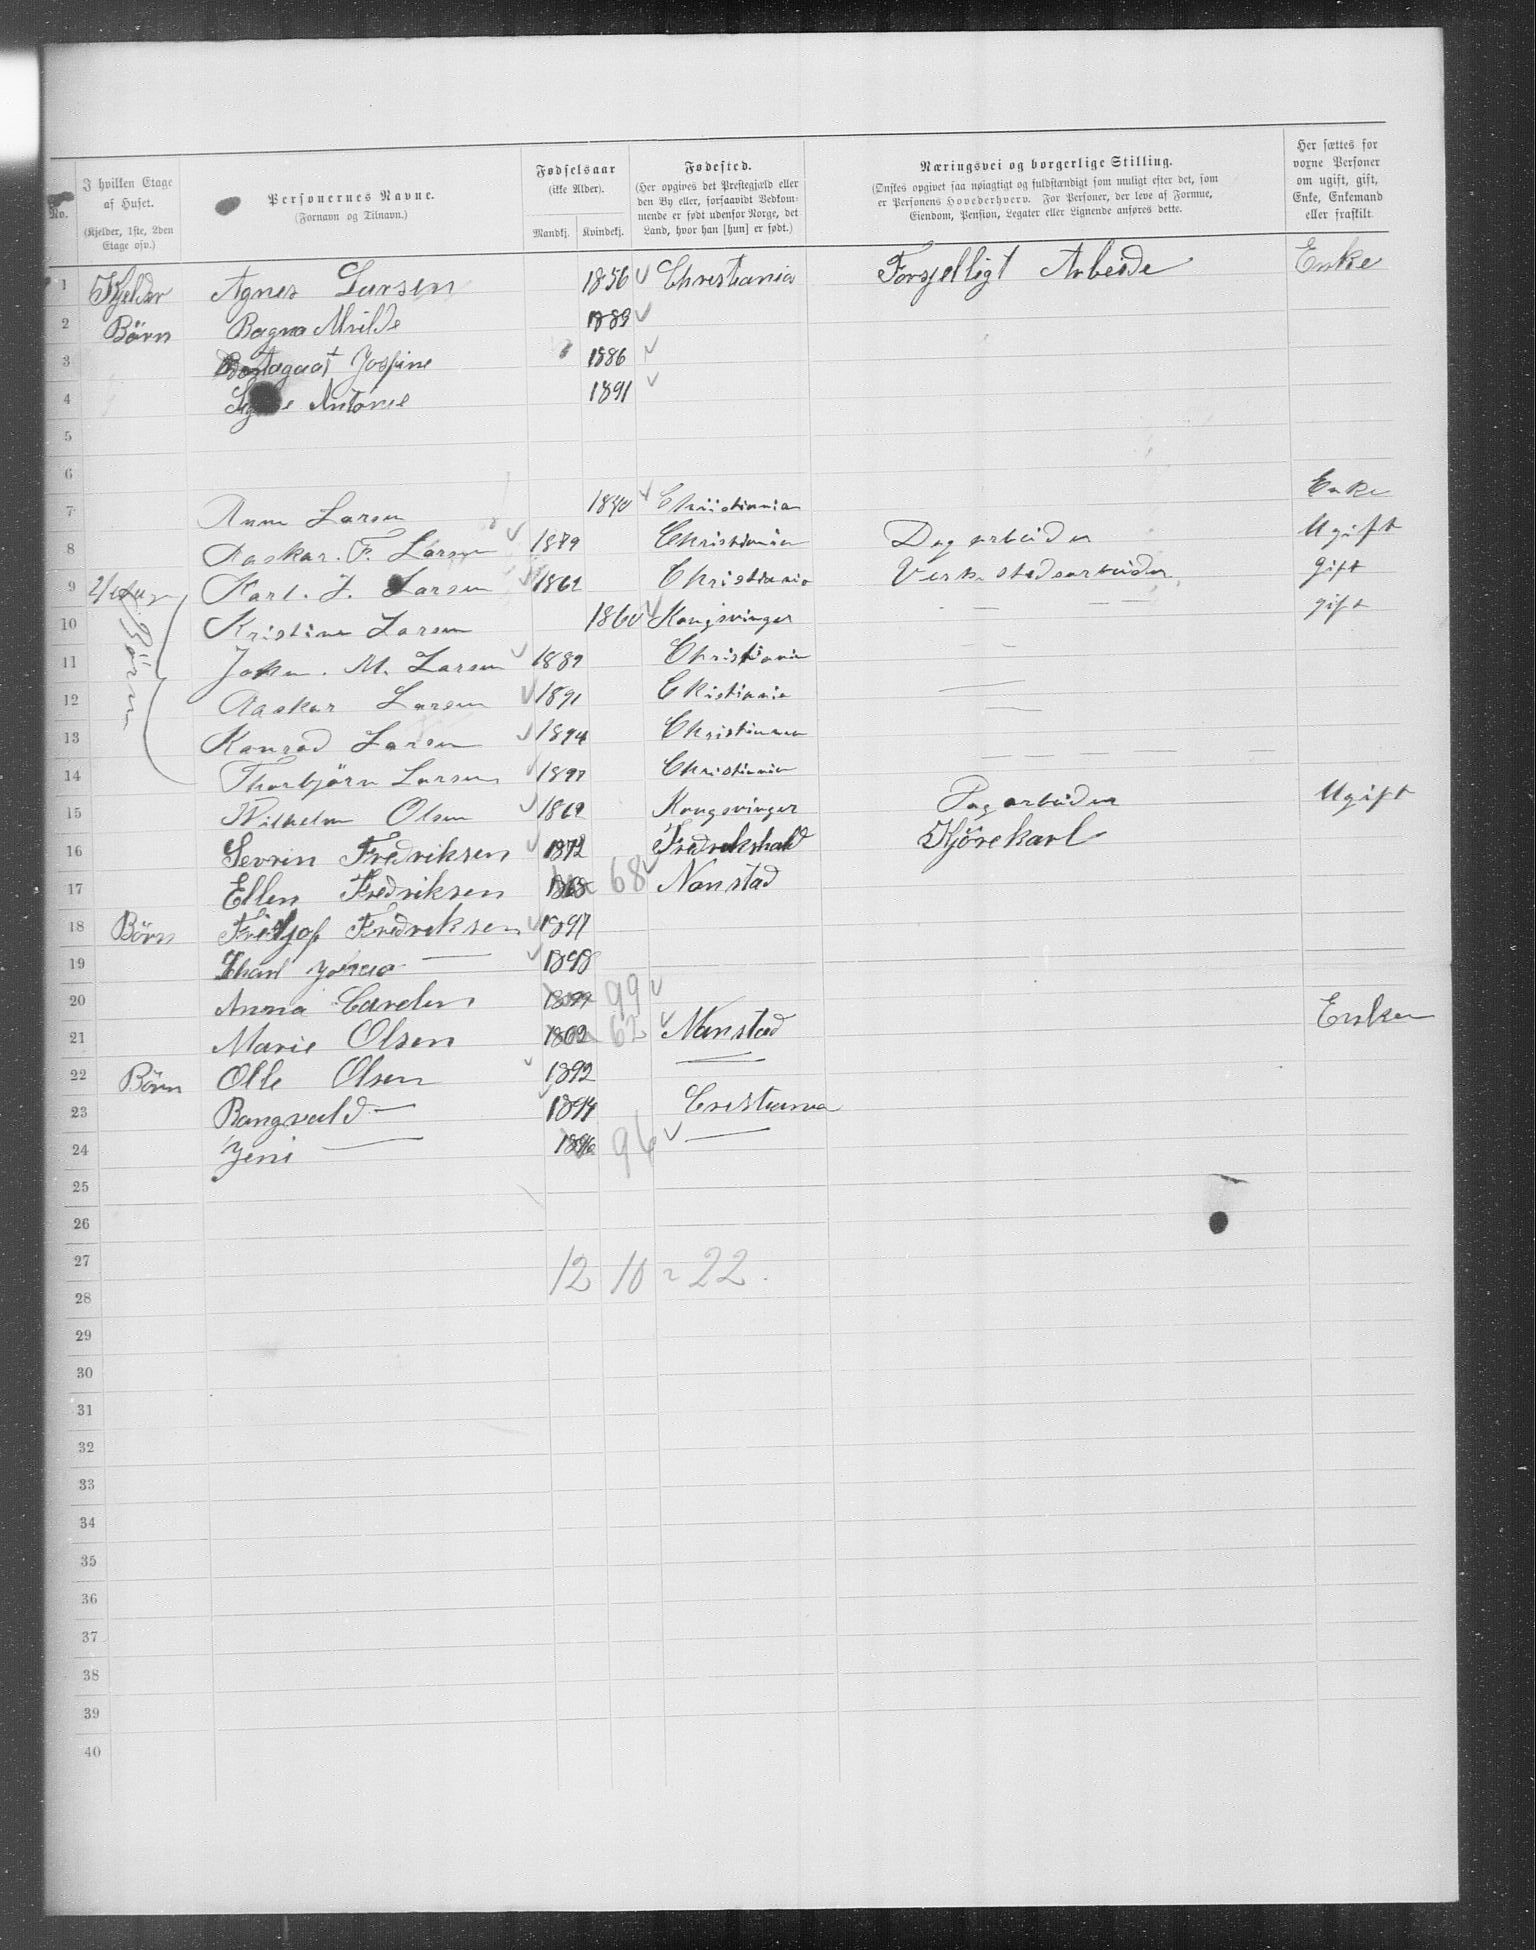 No. | I hvilken Etage af Huset. (Kjelder, 1ste, 2den Etage osv.) | Personernes Navne. (Fornavn og Tilnavn.) | Fødselsaar (ikke Alder). Mandkj. Kvindekj. | Fødested. (Her opgives det Prestegjæld eller den By eller, forsaavidt Vedkommende er født udenfor Norge, det Land, hvor han [hun] er født.) | Næringsvei og borgerlige Stilling. (Ønskes opgivet saa nøiagtigt og fuldstændigt som muligt efter det, som er Personens Hovederhverv. For Personer, der leve af Formue, Eiendom, Pension, Legater eller Lignende anføres dette.) | Her sættes for voxne Personer om ugift, gift, Enke, Enkemand eller fraskilt.
1 Kjelder Agnes Larsen 1856 Christiania Forsjelligt Arbeide Enke
2 Børn Bagna 1889
3 Josfine 1886
4 Antonie 1891
5
6
7 Anna Larsen Christiania Enke
8 Aaskar. F. Larsen 1879 Christiania Dagarbeider Ugift
9 Karl. J. Larsen 1862 Christiania Verkstedsarbeider gift
10 Børn Kristine Larsen 1860 Kongsvinger — — — gift
11 Johan. M. Larsen 1889 Christiania
12 Aaskar Larsen 1891 Christiania
13 Konrad Larsen 1894 Christiania
14 Thorbjörn Larsen 1897 Christiania
15 Wilhelm Olsen 1869 Kongsvinger Dagarbeider Ugift
16 Sevrin Fredriksen 1872 Fredrikshald Kjörekarl
17 Ellen Fredriksen 1868 68 Nanstad
18 Børn Fritjof Fredreksen 1897
19 Charl Johan — 1898
20 Anna 1899 99
21 Marie Olsen 1862 62 Nanstad Enke
22 Børn Olle Olsen 1892 —
23 Rangvald — 1894 Cristiania
24 Jeni — 1896 96 —
25
26
27 12 10 = 22.
28
29
30
31
32
33
34
35
36
37
38
39
40